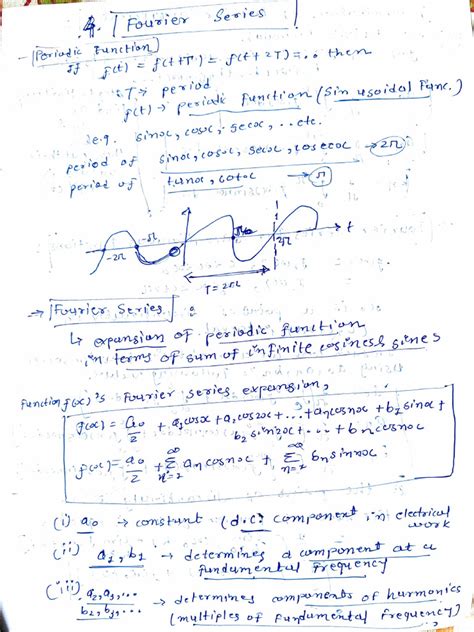 4. Fourier Series
- Periodic Function
If f(t) = f(t+T) = f(t+2T) = .. then
T → period
f(t) → periodic function (Sinusoidal Func.)
e.g. sinx, cosx, secx, .. etc.
period of sinx, cosx, secx, cosecx → 2π
period of tanx, cotx → π
-2π -π 2π → t
T = 2π
→ Fourier Series :
↳ expansion of periodic function
in terms of sum of infinite cosines & sines
Function f(x)'s Fourier series expansion,
f(x) = a0/2 + a1cosx + a2cos2x + ... + ancosnx + b1sinx +
b2sin2x + ... + bncosnx
f(x) = a0/2 + ∞Σn=1 ancosnx + ∞Σn=1 bnsinnx
(i) a0 → constant (d.c.) component in electrical
work
(ii) a1, b1 → determines a component at a
fundamental frequency
(iii) a2, a3, ... b2, b3, ... → determines components of harmonics
(multiples of fundamental frequency)